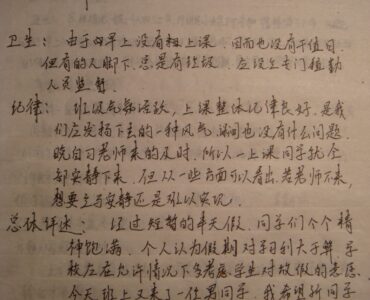 卫生: 由于四早上没有粗上课. 因而也没有干值日
但有的人脚下. 总是有垃圾. 应设立专门值勤
人员监督
纪律: 班级气氛活跃, 上课整体纪律良好. 是我
们应发扬下去的一种风气. 课间也没有什么问题
晚自习老师来的及时. 所以一上课同学就全
部安静下来. 但从一些方面可以看出, 若老师不来,
想要立马安静还是难以实现.
总体评述: 经过短暂的半天假. 同学们个个精
神饱满. 个人认为假期对学习利大于弊. 学
校应在允许情况下考虑学生对放假的意愿
今天班上又来了一位男同学. 我希望新同学